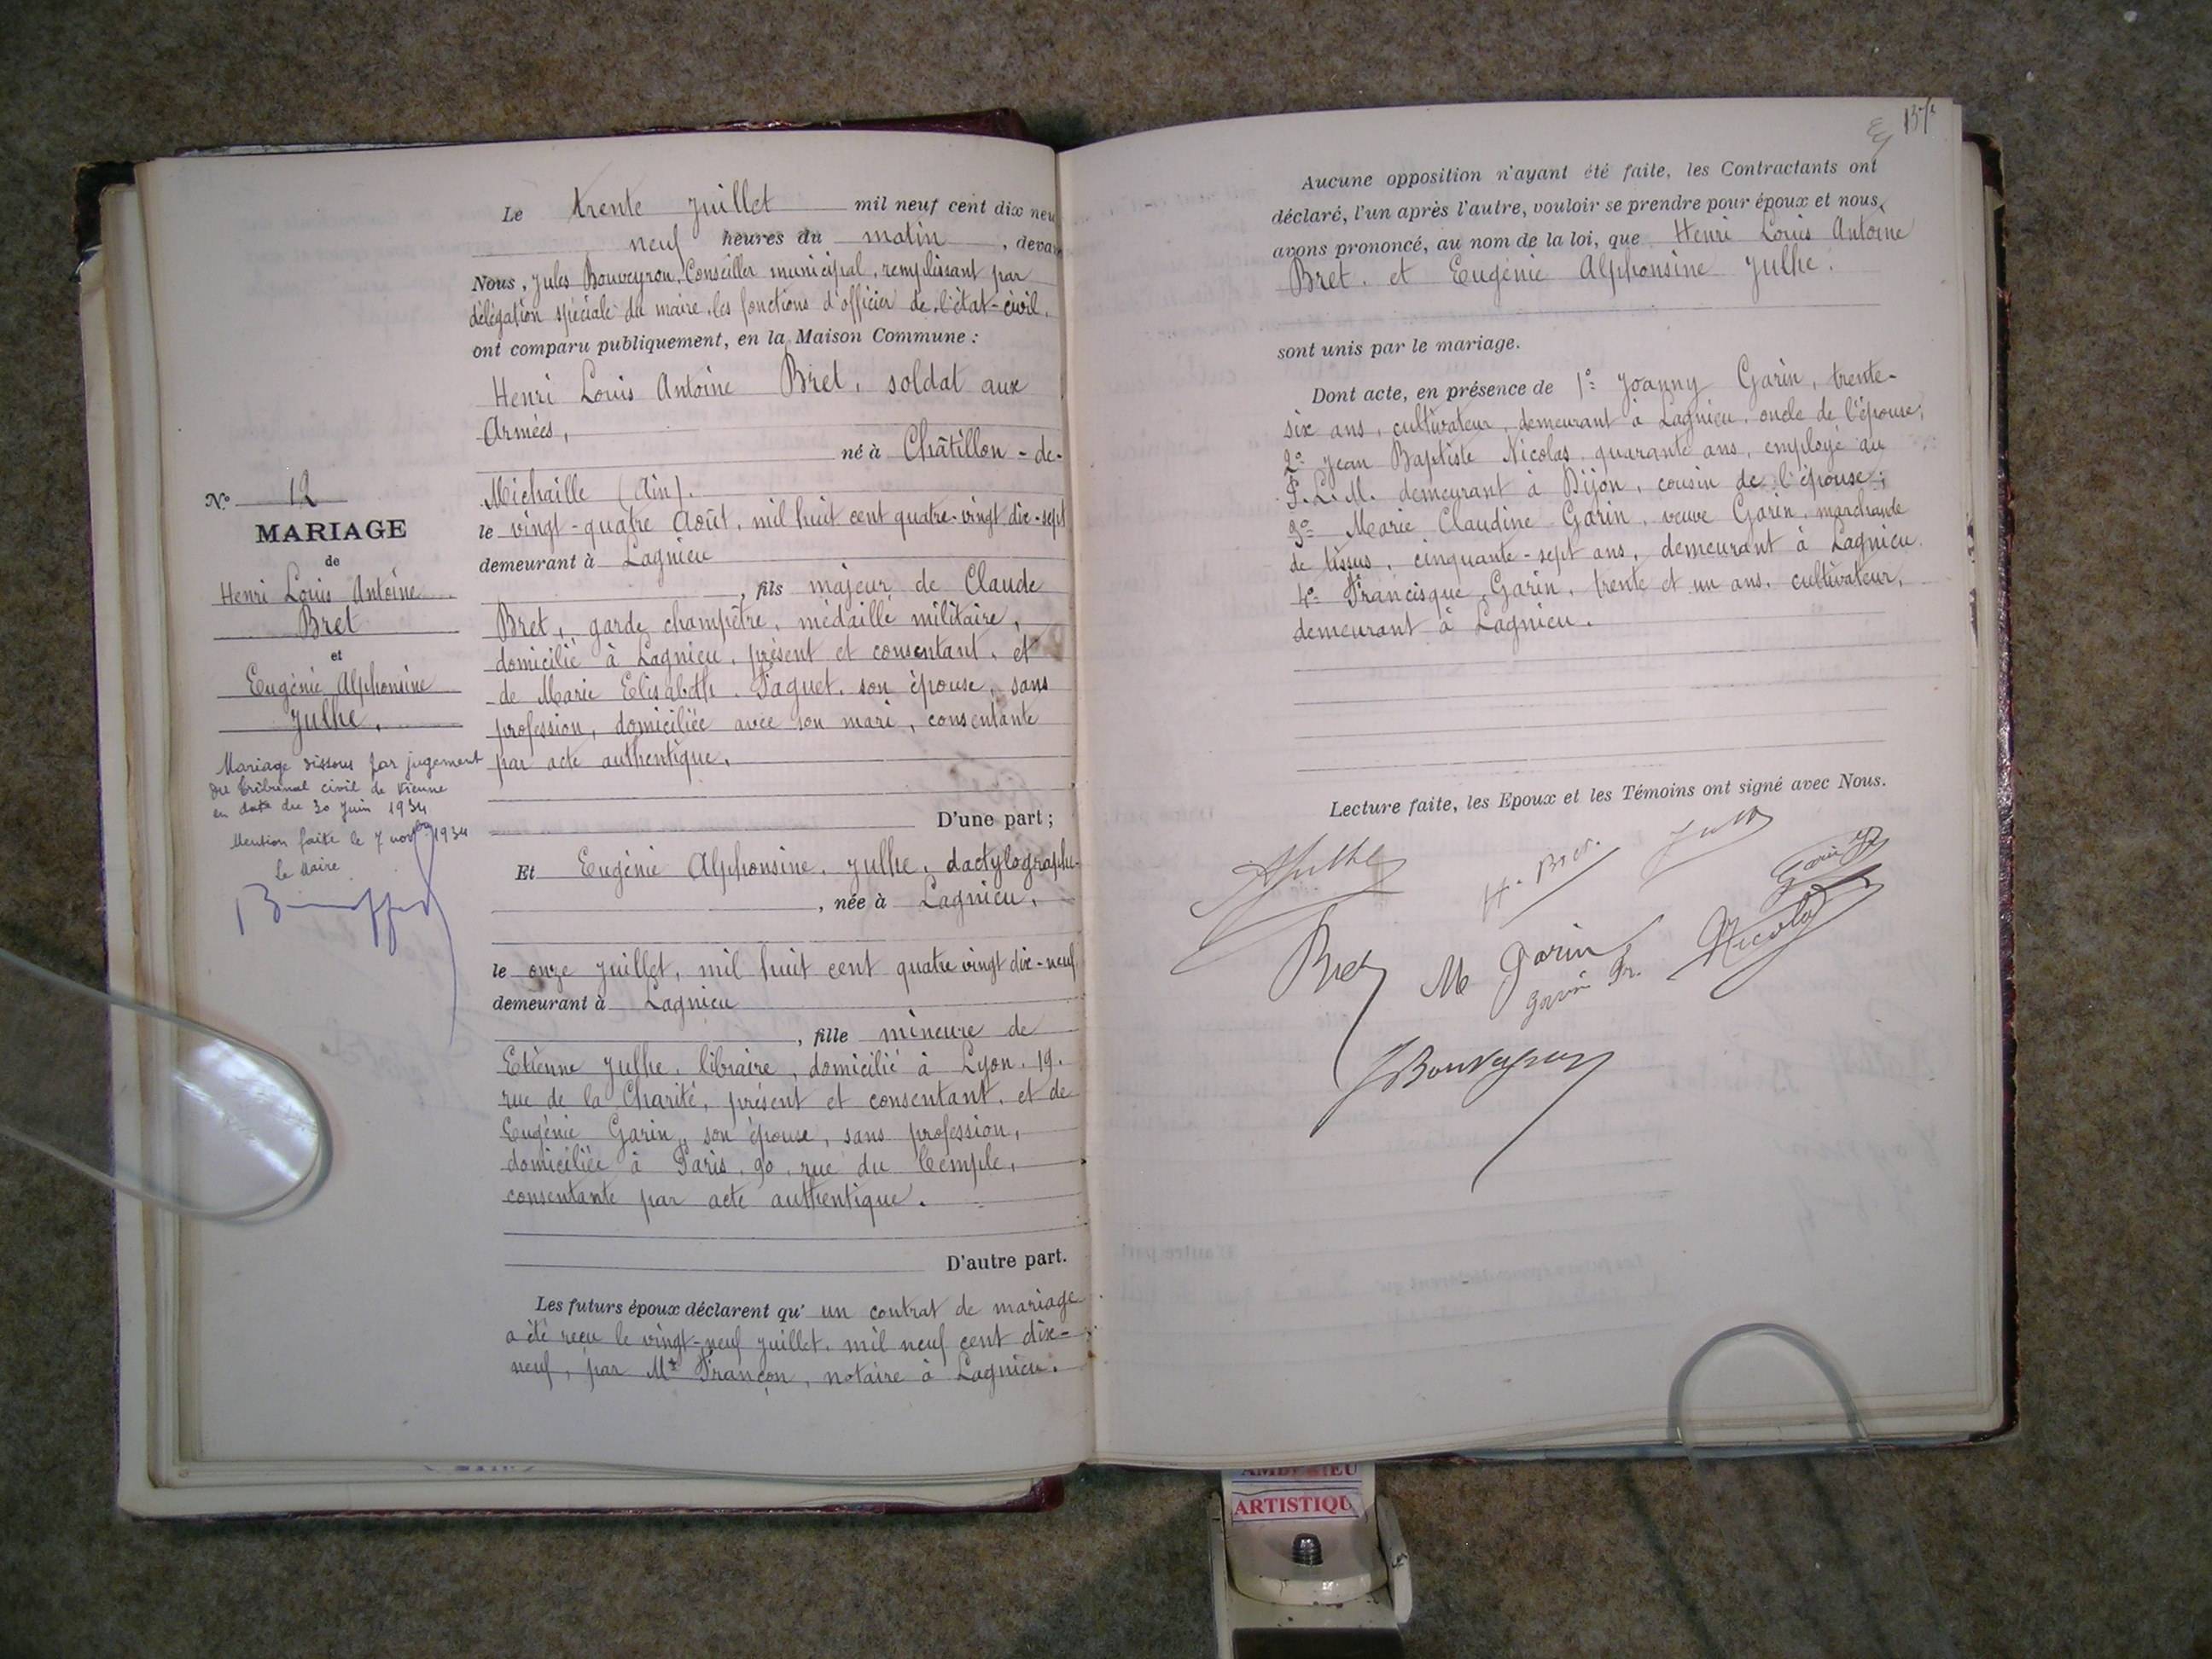 N° 12
MARIAGE
de
Henri Louis Antoine
Bret
et
Eugénie Alphonsine
Julhe,
Mariage dissous par jugement
du Tribunal civil de Vienne
en date du 30 Juin 1934
Mention faite le 7 novbre 1934
Le Maire
Le trente juillet mil neuf cent dix neu
neuf heures du matin, devan
Nous, Jules Bouveyron, Conseiller municipal, remplissant par
délégation spéciale du maire, les fonctions d'officier de l'état-civil,
ont comparu publiquement, en la Maison Commune :
Henri Louis Antoine Bret, soldat aux
Armées,
né à Châtillon-de-
Michaille (Ain).
le vingt-quatre Août, mil huit cent quatre-vingt dix-sept
demeurant à Lagnieu
, fils majeur de Claude
Bret, garde champêtre, médaillé militaire,
domicilié à Lagnieu, présent et consentant, et
de Marie Elisabeth Paquet, son épouse, sans
profession, domiciliée avec son mari, consentante
par acte authentique,
D'une part ;
Et Eugénie Alphonsine, Julhe, dactylographe
, née à Lagnieu,
le onze juillet, mil huit cent quatre vingt dix-neuf
demeurant à Lagnieu
, fille mineure de
Etienne Julhe, libraire, domicilié à Lyon, 19,
rue de la Charité, présent et consentant, et de
Eugénie Garin, son épouse, sans profession,
domiciliée à Paris, 90, rue du Temple,
consentante par acte authentique.
D'autre part.
Les futurs époux déclarent qu' un contrat de mariage
a été reçu le vingt-neuf juillet, mil neuf cent dix-
neuf, par Me Françon, notaire à Lagnieu.
Aucune opposition n'ayant été faite, les Contractants ont
déclaré, l'un après l'autre, vouloir se prendre pour époux et nous
avons prononcé, au nom de la loi, que Henri Louis Antoine
Bret, et Eugénie Alphonsine Julhe,
sont unis par le mariage.
Dont acte, en présence de 1° Joanny Garin, trente-
six ans, cultivateur, demeurant à Lagnieu, oncle de l'épouse;
2° Jean Baptiste Nicolas, quarante ans, employé au
P.L.M. demeurant à Dijon, cousin de l'épouse;
3° Marie Claudine Garin, veuve Garin, marchande
de tissus, cinquante-sept ans, demeurant à Lagnieu.
4° Francisque Garin, trente et un ans, cultivateur,
demeurant à Lagnieu.
Lecture faite, les Epoux et les Témoins ont signé avec Nous.
AJulhe
H. Bret
Garin
Bret
M Garin
Garin Fr.
Nicolas
JBouveyron
ARTISTIQU